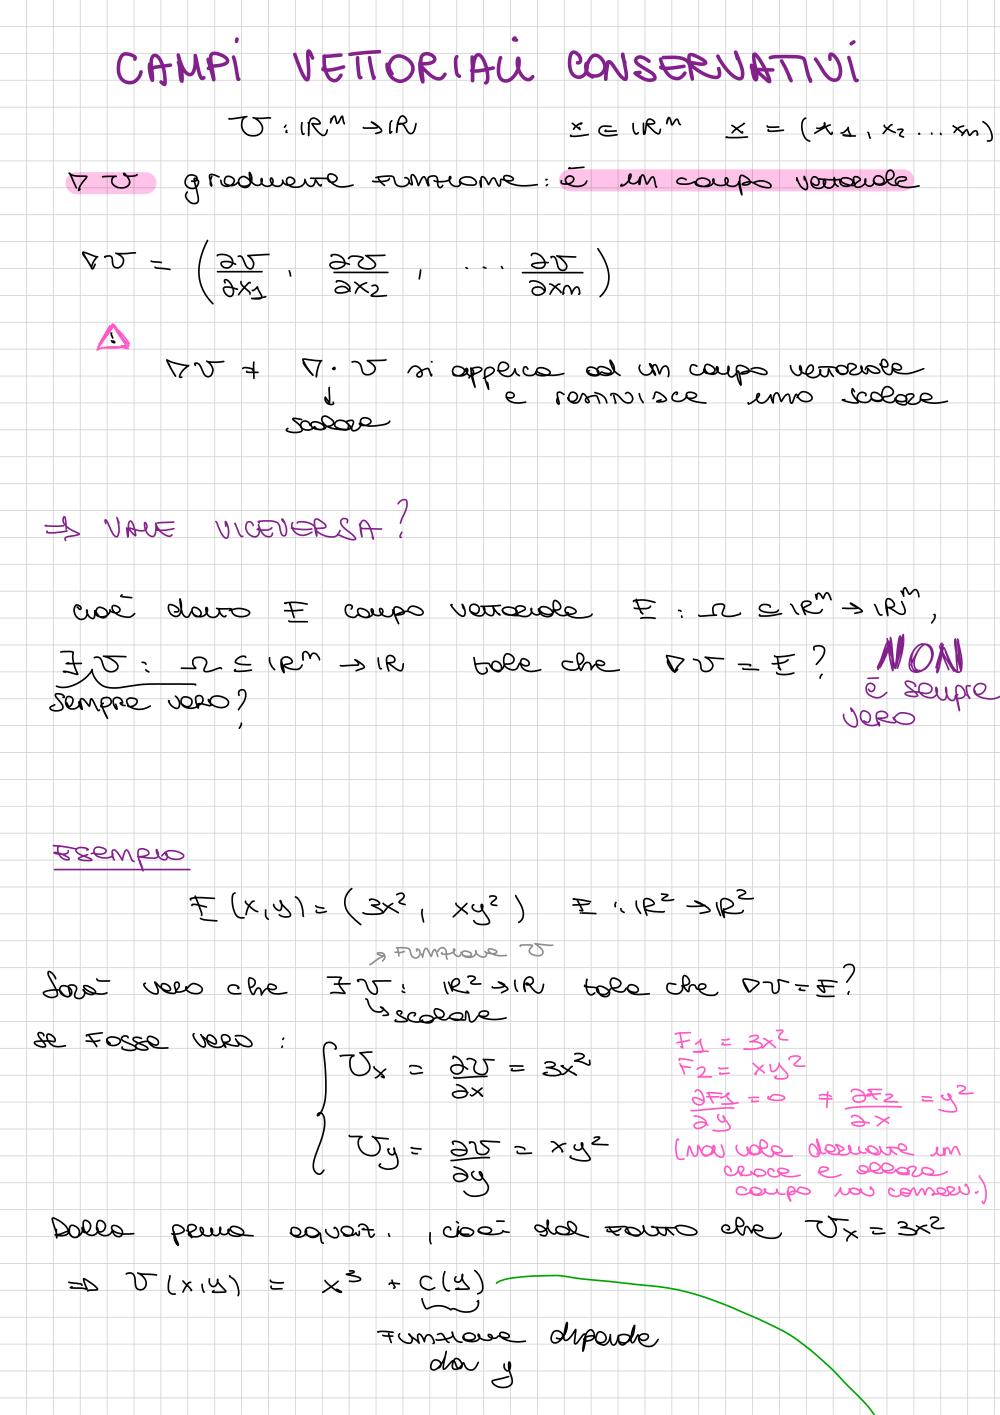 CAMPI VETTORIALI CONSERVATIVI
U : ℝⁿ → ℝ x ∈ ℝⁿ x = (x₁, x₂ ... xₙ)
∇U gradiente funzione: è un campo vettoriale
∇U = (∂U/∂x₁, ∂U/∂x₂, ... ∂U/∂xₙ)
⚠
∇U ≠ ∇·U si applica ad un campo vettoriale
↓ e restituisce uno scalare
scalare
⇒ VALE VICEVERSA?
cioè dato F campo vettoriale F : Ω ⊆ ℝⁿ → ℝⁿ,
∃ U : Ω ⊆ ℝⁿ → ℝ tale che ∇U = F? NON
sempre vero? è sempre
vero
Esempio
F(x,y) = (3x², xy²) F : ℝ² → ℝ²
↗ Funzione U
Sarà vero che ∃ U : ℝ² → ℝ tale che ∇U = F?
↳ scalare
se fosse vero :
Uₓ = ∂U/∂x = 3x²
U_y = ∂U/∂y = xy²
F₁ = 3x²
F₂ = xy²
∂F₁/∂y = 0 ≠ ∂F₂/∂x = y²
(non vale derivate in
croce e allora
campo non conserv.)
Dalla prima equaz., cioè dal fatto che Uₓ = 3x²
⇒ U(x,y) = x³ + c(y)
funzione dipende
da y